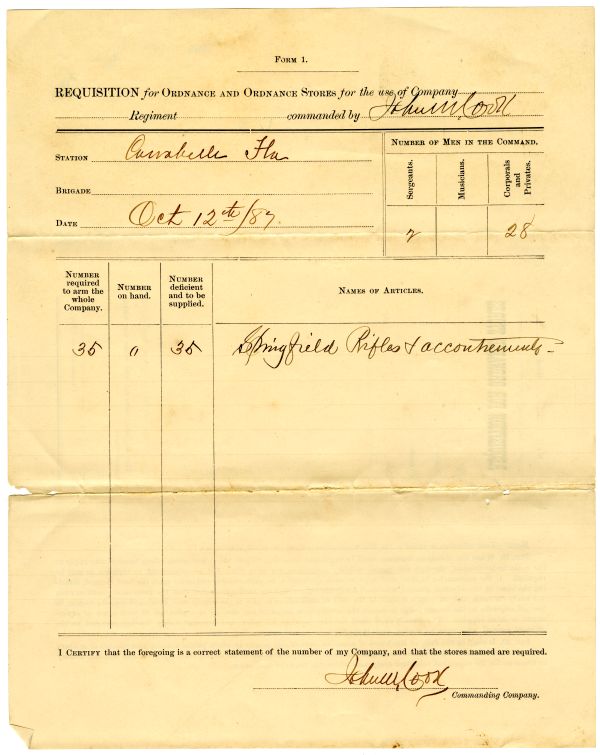 FORM 1.
REQUISITION for ORDNANCE AND ORDNANCE STORES for the use of Company
Regiment commanded by John W. Cook
STATION Carrabelle Fla
BRIGADE
DATE Oct 12th/87.
NUMBER OF MEN IN THE COMMAND.
Sergeants. Musicians. Corporals and Privates.
2 28
NUMBER required to arm the whole Company. NUMBER on hand. NUMBER deficient and to be supplied. NAMES OF ARTICLES.
35 " 35 Springfield Rifles & accoutrements
I CERTIFY that the foregoing is a correct statement of the number of my Company, and that the stores named are required.
John W. Cook
Commanding Company.